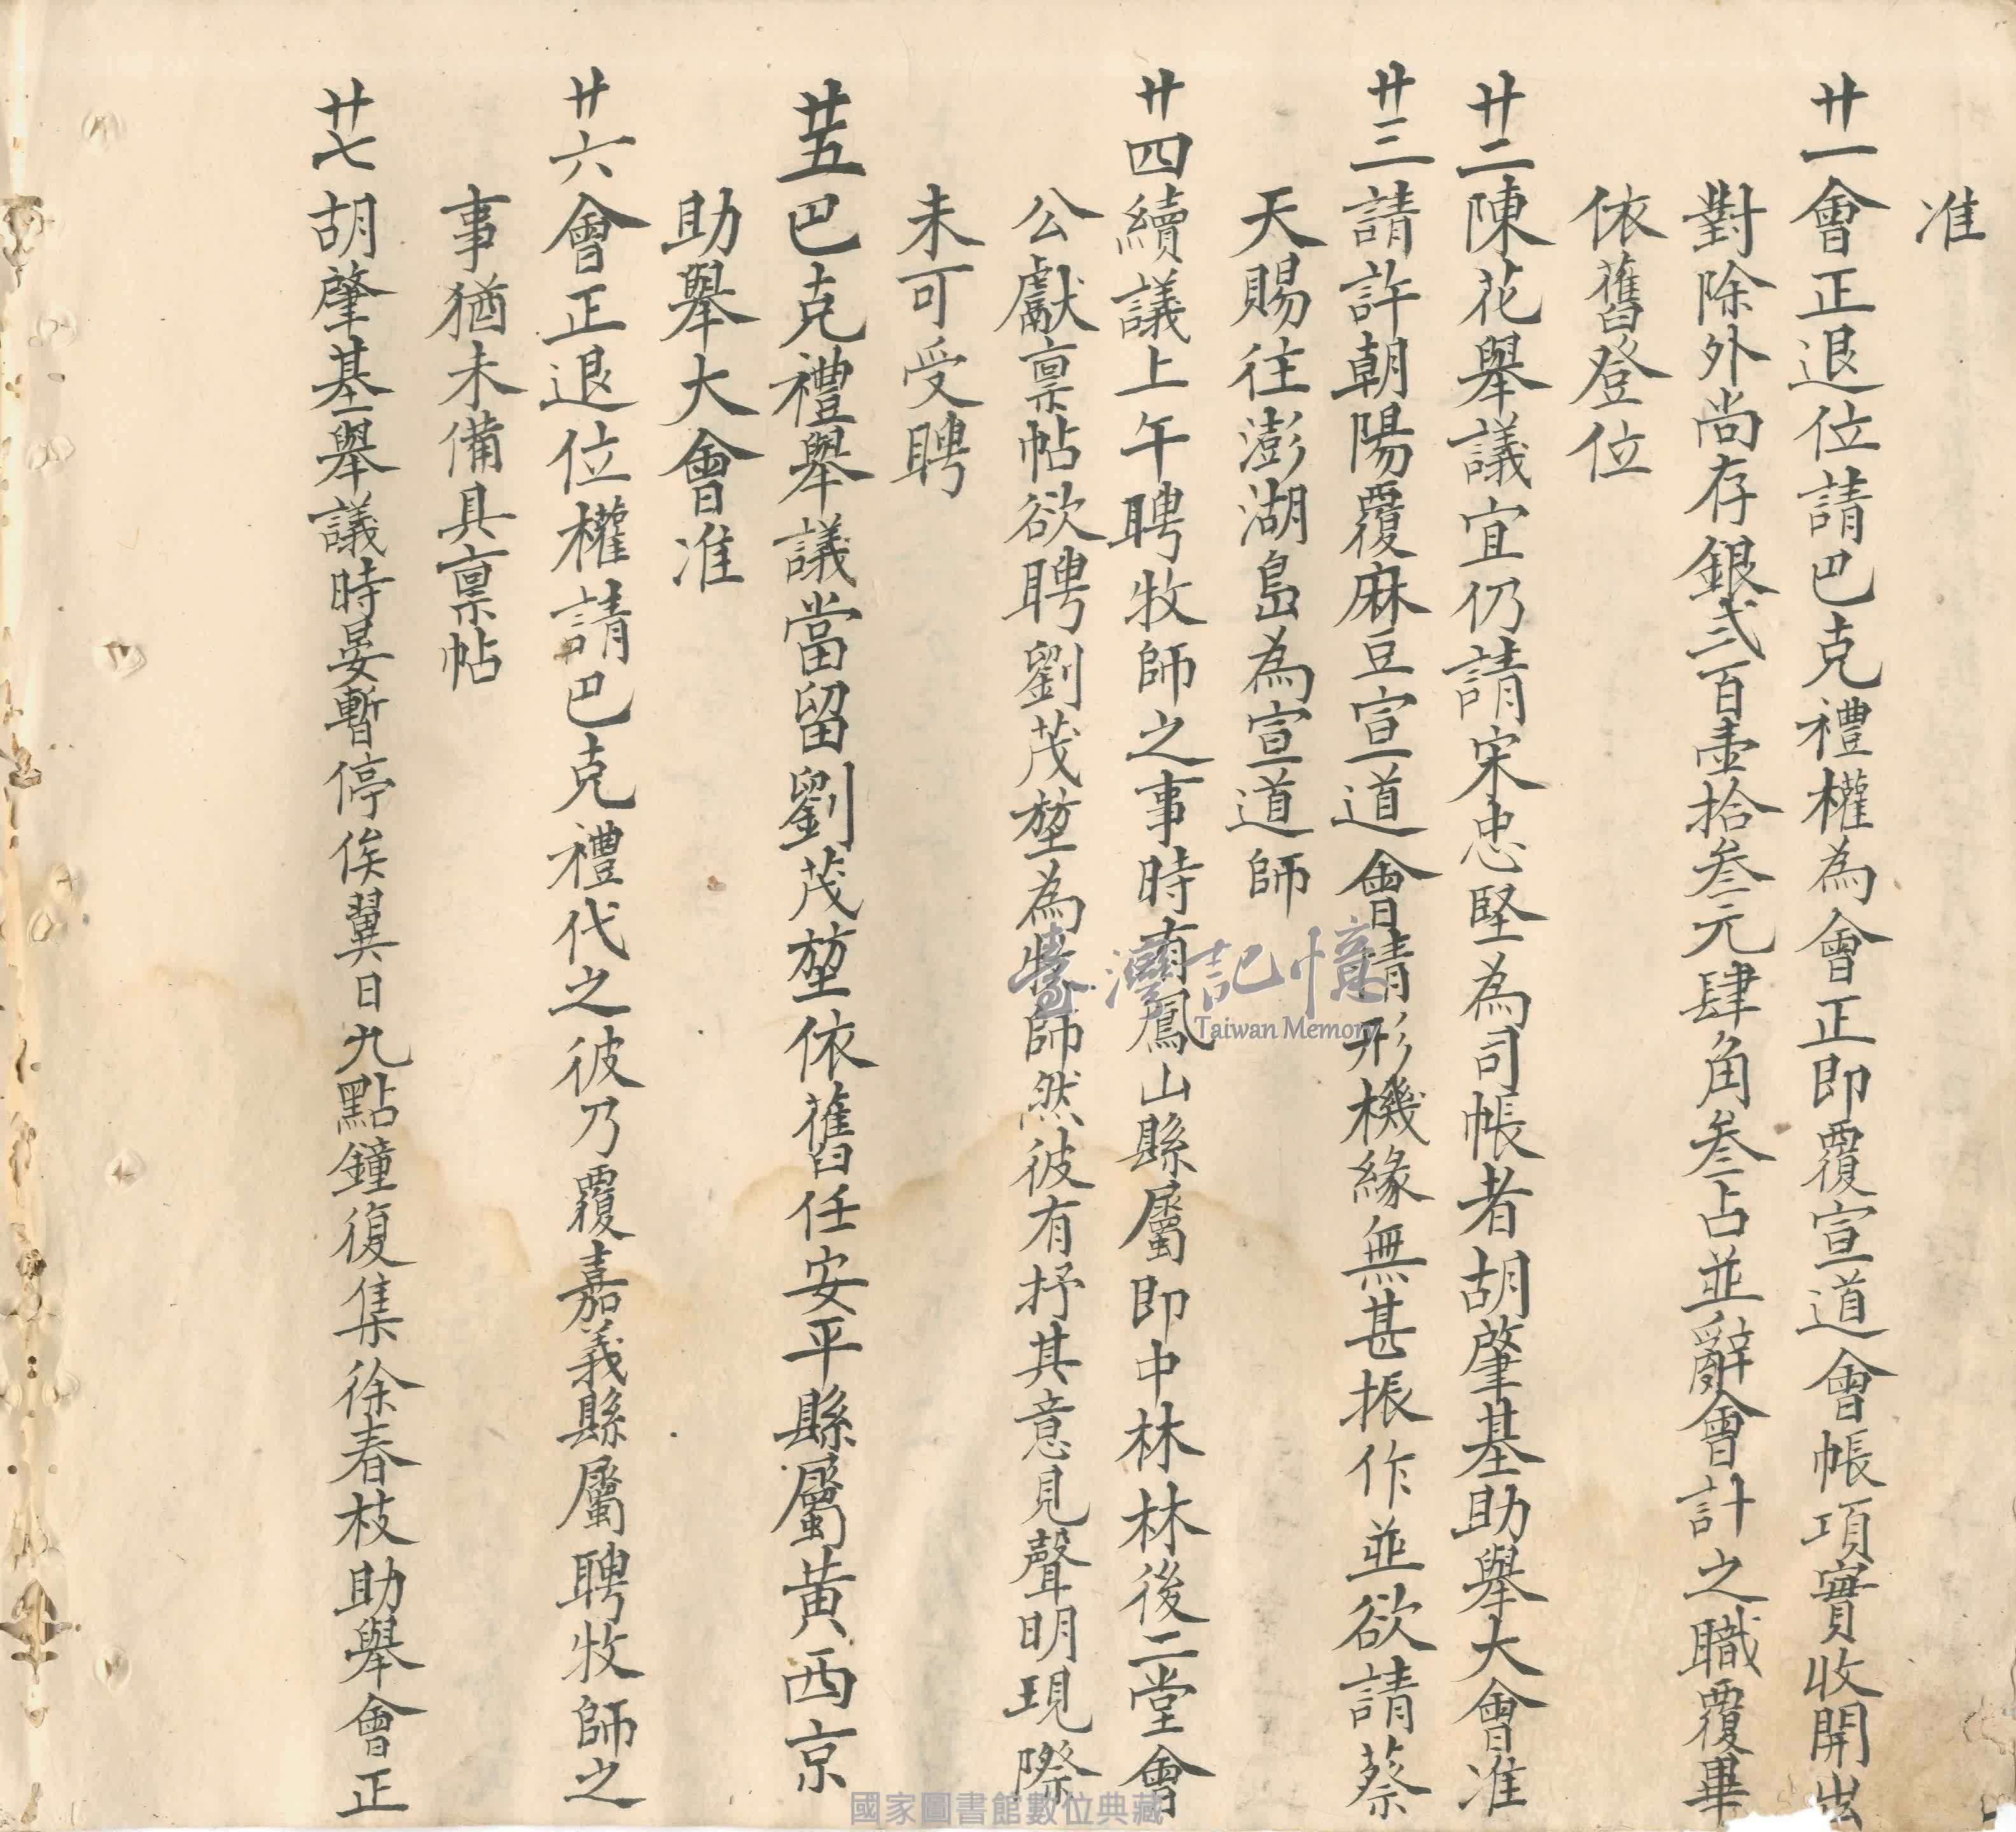 准
廿一會正退位請巴克禮權為會正即覆宣道會帳項實收開出
對除外尚存銀弍百壹拾叁元肆角叁占並辭會計之職覆畢
依舊登位
廿二陳花舉議宜仍請宋忠堅為司帳者胡肇基助舉大會准
廿三請許朝陽覆麻豆宣道會情形機緣無甚振作並欲請蔡
天賜往澎湖島為宣道師
廿四續議上午聘牧師之事時有鳳山縣屬即中林林後二堂會
公獻禀帖欲聘劉茂堃為牧師然彼有抒其意見聲明現際
未可受聘
廿五巴克禮舉議當留劉茂堃依舊任安平縣屬黃西京
助舉大會准
廿六會正退位權請巴克禮代之彼乃覆嘉義縣屬聘牧師之
事猶未備具禀帖
廿七胡肇基舉議時晏暫停俟翼日九點鐘復集徐春枝助舉會正
臺灣記憶
Taiwan Memory
國家圖書館數位典藏